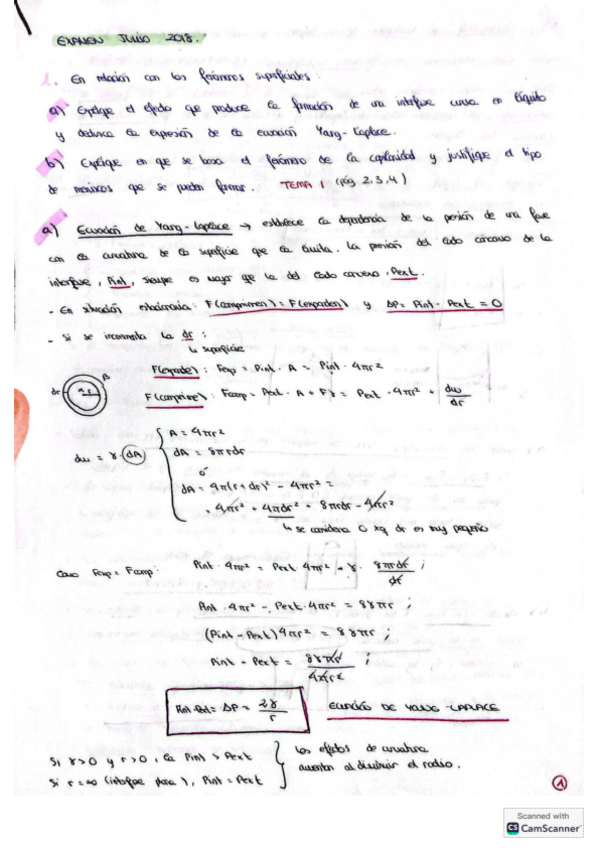 EXAMEN JULIO 2018.
1. En relación con los fenómenos superficiales:
a) Explique el efecto que produce la formación de una interfase curva en líquido
y deduzca la expresión de la ecuación Yang-Laplace.
b) Explique en que se basa el fenómeno de la capilaridad y justifique el tipo
de meniscos que se pueden formar. TEMA 1 (pág 2,3,4)
a) Ecuación de Yang-Laplace → establece la dependencia de la presión de una fase
con la curvatura de la superficie que la limita. La presión del lado cóncavo de la
interfase, Pint, siempre es mayor que la del lado convexo, Pext.
- En situación estacionaria: F(comprimen) = F(expanden) y ΔP = Pint - Pext = 0
- Si se incrementa la dr:
↳ superficie
F(expande): Fexp = Pint · A = Pint · 4πr²
F(comprime): Fcomp = Pext · A + Fγ = Pext · 4πr² + dw/dr
dw = γ · dA
A = 4πr²
dA = 8πrdr
dA = 4π(r+dr)² - 4πr² =
= 4πr² + 4πdr² + 8πrdr - 4πr²
↳ se considera 0 xq dr es muy pequeño
Como Fexp = Fcomp: Pint · 4πr² = Pext · 4πr² + γ · 8πrdr/dr ;
Pint · 4πr² - Pext · 4πr² = 8γπr ;
(Pint - Pext) 4πr² = 8γπr ;
Pint - Pext = 8γπr/4πr² ;
Pint-Pext = ΔP = 2γ/r ECUACIÓN DE YOUNG-LAPLACE
Si γ>0 y r>0, la Pint > Pext
Si r=∞ (interfase plana), Pint = Pext
Los efectos de curvatura
aumentan al disminuir el radio.
1
Scanned with
CS CamScanner